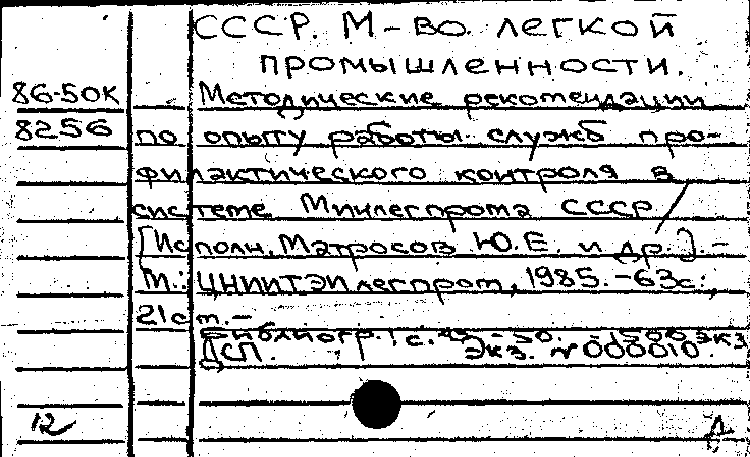 СССР. М-во легкой
промышленности.
86-50К
Методические рекомендации
8256
по опыту работы служб про-
филактического контроля в
системе Минлегпрома СССР /
[Исполн. Матросов Ю.Е. и др.]. -
М.: ЦНИИТЭИлегпром, 1985. - 63с.;
21см. -
Библиогр.: с. - 50. 1500 экз
ДСП. Экз. № 000010.
12